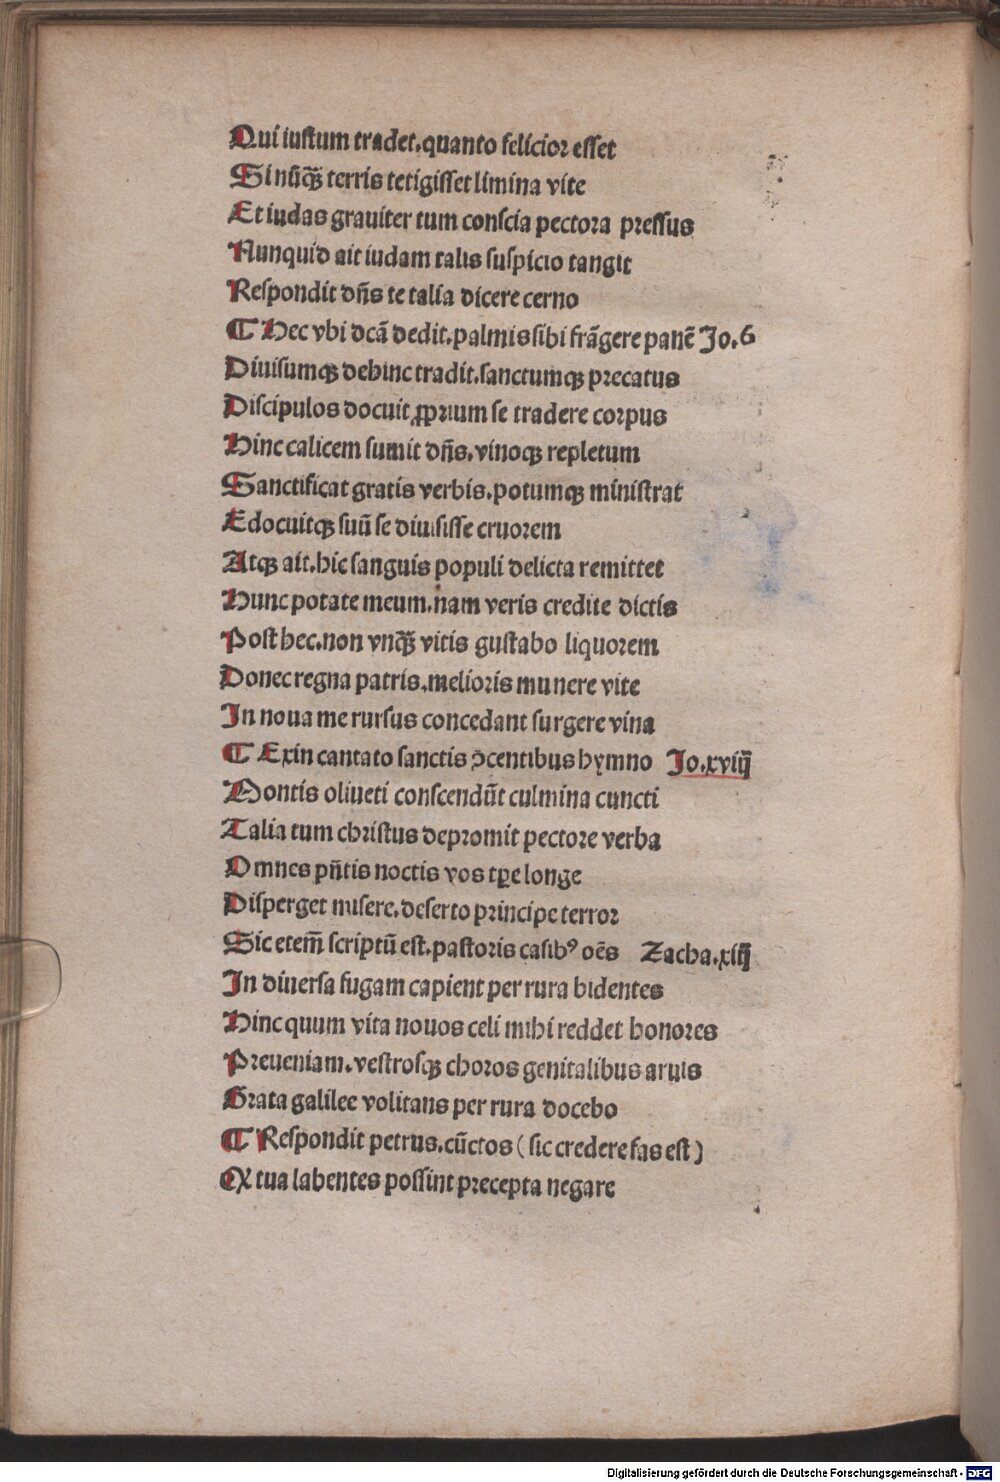 Qui iustum tradet.quanto felicior esset
Si nūqȝ terris tetigisset limina vite
Et iudas grauiter tum conscia pectora pressus
Nunquid ait iudam talis suspicio tangit
Respondit dn̄s te talia dicere cerno
¶ Hec vbi dcā dedit.palmis sibi frāgere panē Jo.6
Diuisumqȝ dehinc tradit.sanctumqȝ precatus
Discipulos docuit ꝓprium se tradere corpus
Hinc calicem sumit dn̄s.vinoqȝ repletum
Sanctificat gratis verbis.potumqȝ ministrat
Edocuitqȝ suū se diuisisse cruorem
Atqȝ ait.hic sanguis populi delicta remittet
Hunc potate meum.nam veris credite dictis
Post hec.non vnqȝ̄ vitis gustabo liquorem
Donec regna patris.melioris munere vite
In noua me rursus concedant surgere vina
¶ Exin cantato sanctis ꝺcentibus hymno Jo.xviij
Montis oliueti conscendūt culmina cuncti
Talia tum christus depromit pectore verba
Omnes pn̄tis noctis vos tꝑe longe
Disperget misere.deserto principe terror
Sic etem̄ scriptū est.pastoris casibꝰ oēs Zacha.xiij
In diuersa fugam capient per rura bidentes
Hinc quum vita nouos celi mihi reddet honores
Preueniam.vestrosqȝ choros genitalibus aruis
Grata galilee volitans per rura docebo
¶ Respondit petrus.cūctos (sic credere fas est)
Ex tua labentes possint precepta negare
Digitalisierung gefördert durch die Deutsche Forschungsgemeinschaft - DFG